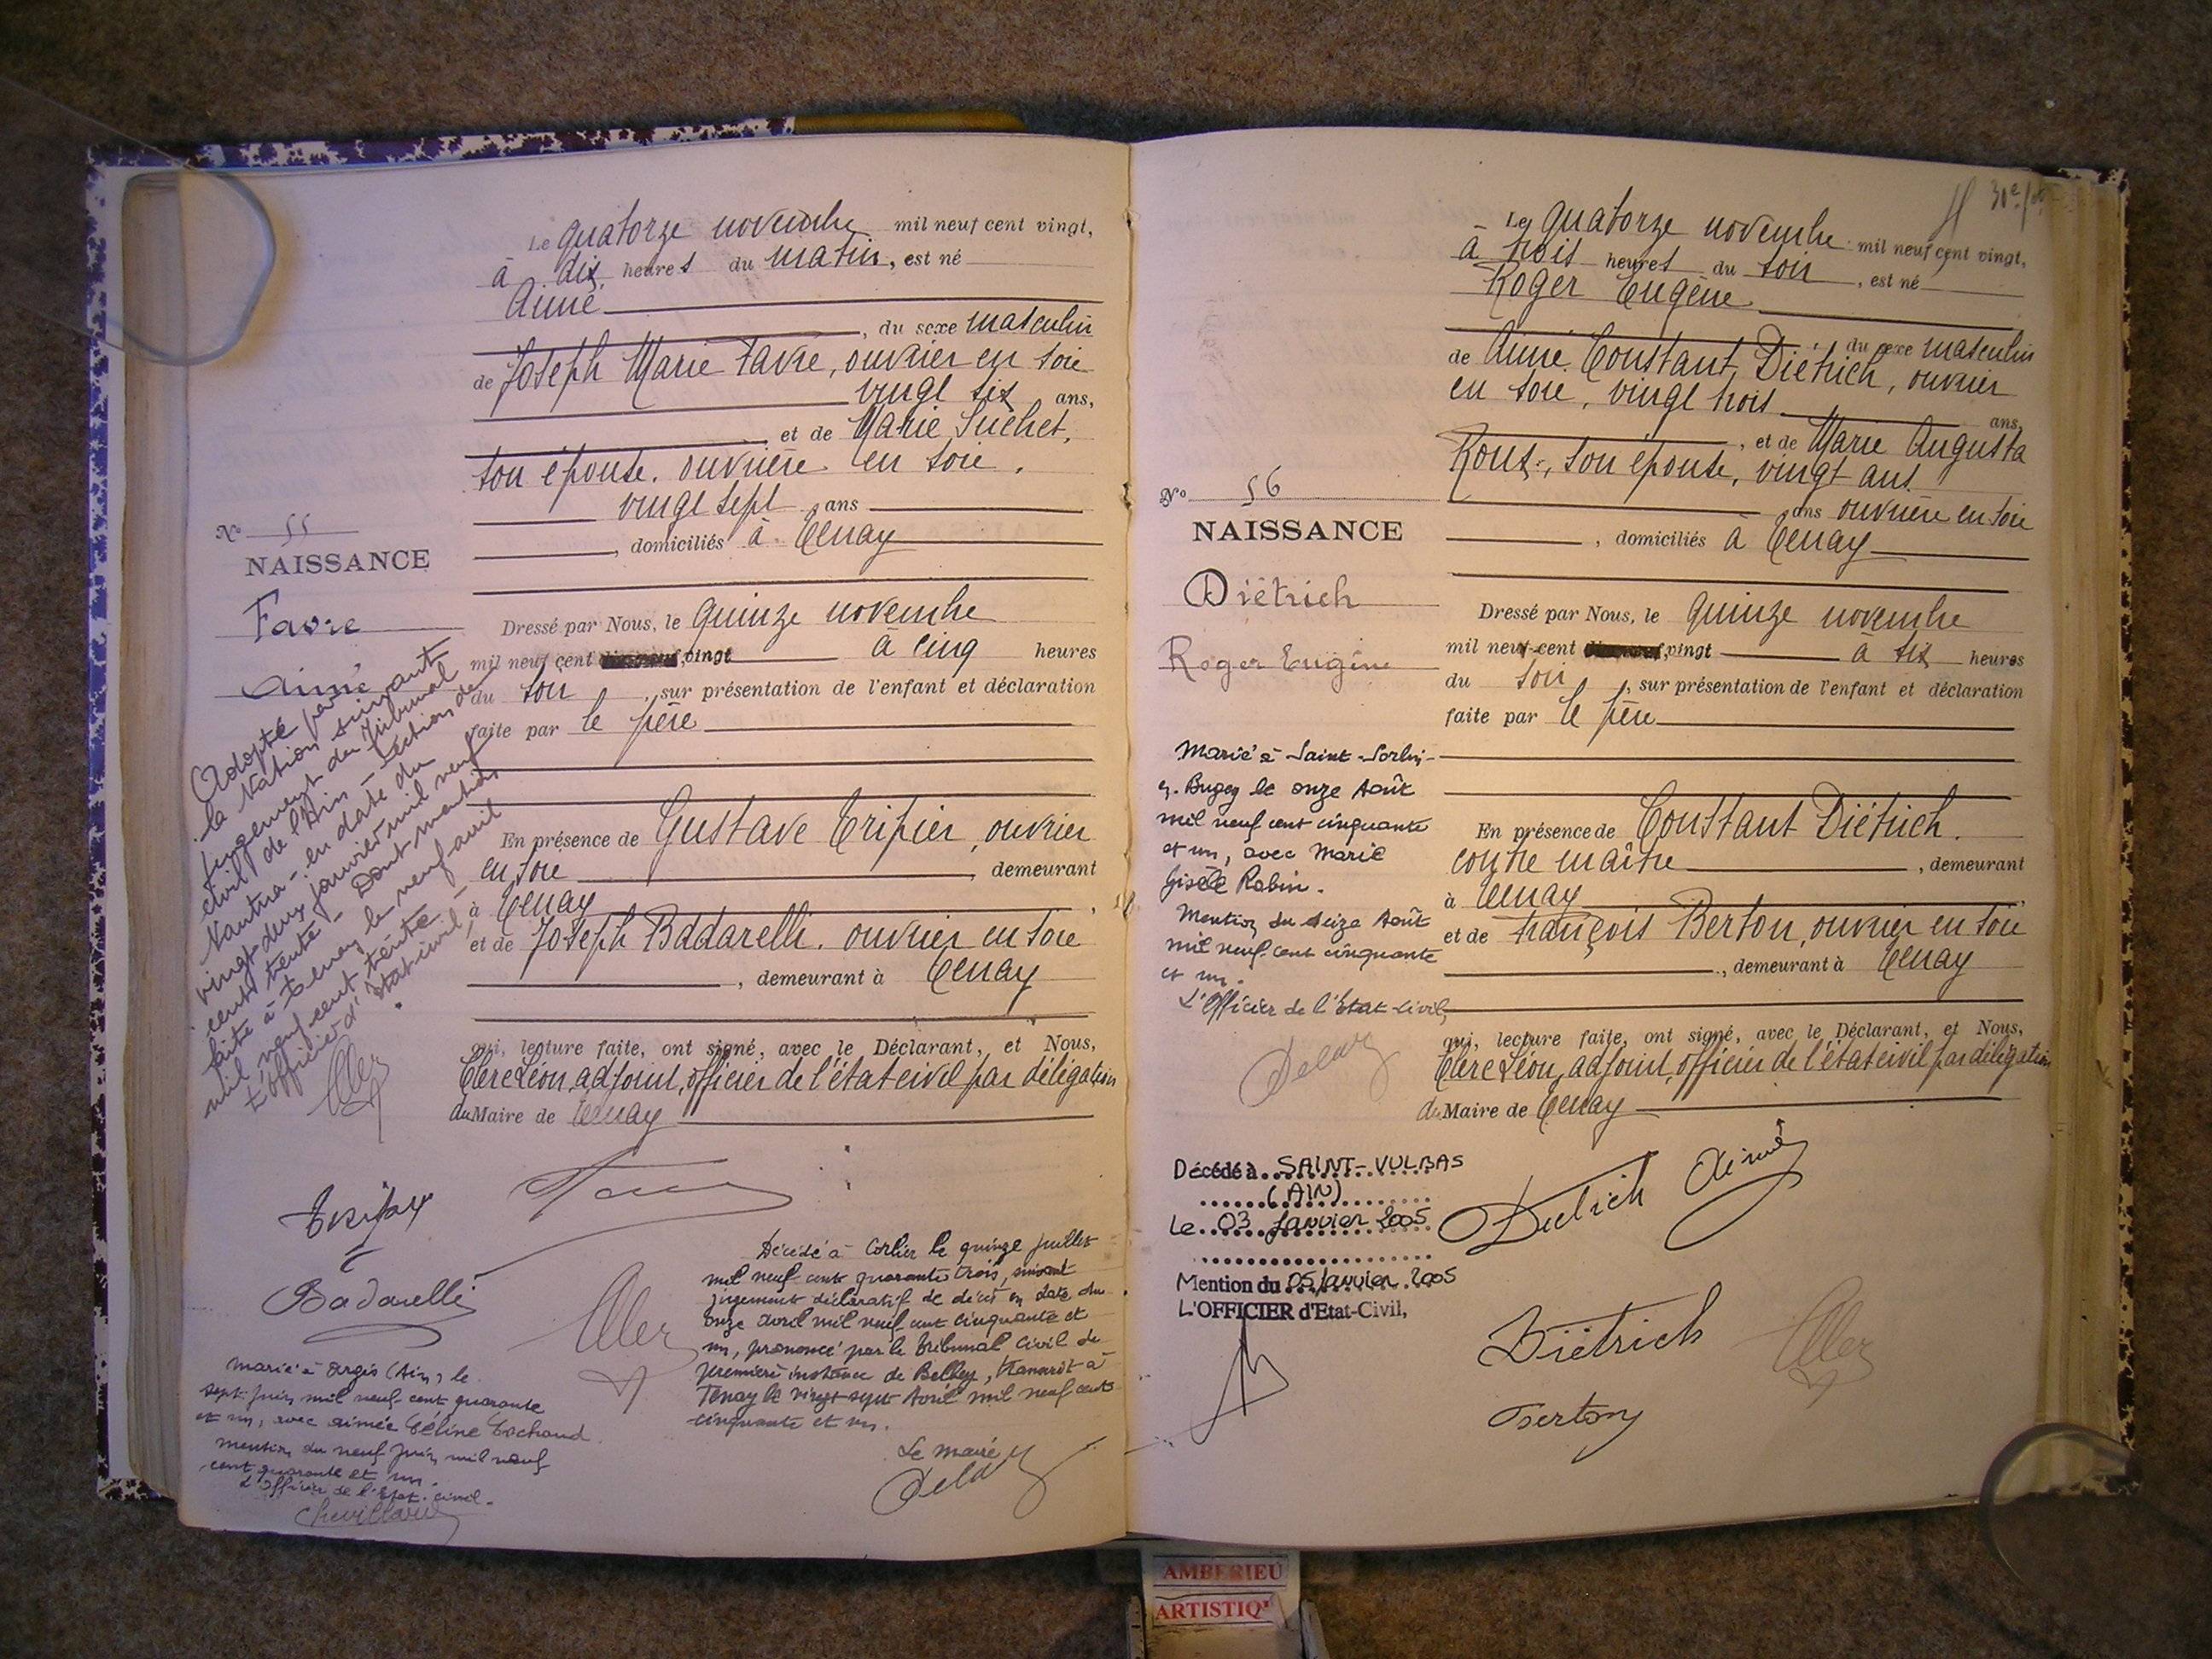 Le quatorze novembre mil neuf cent vingt,
à dix heures du matin, est né
Aimé
, du sexe masculin
de Joseph Marie Favre, ouvrier en soie
vingt six ans,
et de Marie Suchet,
son épouse, ouvrière en soie,
vingt sept ans
, domiciliés à Tenay
No 55
NAISSANCE
Favre
Aimé
Dressé par Nous, le quinze novembre
mil neuf cent vingt à cinq heures
du soir, sur présentation de l'enfant et déclaration
faite par le père
Adopté par
la Nation suivant
jugement du Tribunal
civil de l'Ain - Section de
Nantua - en date du
vingt deux janvier mil neuf
cent trente - Dont mention
faite à Tenay le neuf avril
mil neuf cent trente -
L'officier d'état civil -
En présence de Gustave Tripier, ouvrier
en soie, demeurant
à Tenay,
et de Joseph Badarelli, ouvrier en soie
, demeurant à Tenay
qui, lecture faite, ont signé, avec le Déclarant, et Nous,
Clerc Léon, adjoint, officier de l'état civil par délégation
du Maire de Tenay
Badarelli
Décédé à Corlier le quinze juillet
mil neuf cent quarante trois, suivant
jugement déclaratif de décès en date du
onze avril mil neuf cent cinquante et
un, prononcé par le tribunal civil de
première instance de Belley, transcrit à
Tenay le vingt-sept Avril mil neuf cent
cinquante et un.
Le maire
marié à Argis (Ain) le
sept juin mil neuf cent quarante
et un, avec Aimée Céline Cochand
mention du neuf juin mil neuf
cent quarante et un.
L'officier de l'Etat civil.
Chevillard
Le quatorze novembre mil neuf cent vingt,
à trois heures du soir, est né
Roger Eugène
, du sexe masculin
de Aimé Constant Diétrich, ouvrier
en soie, vingt trois ans,
, et de Marie Augusta
Roux, son épouse, vingt ans
ans ouvrière en soie
, domiciliés à Tenay
No 56
NAISSANCE
Diétrich
Roger Eugène
Dressé par Nous, le quinze novembre
mil neuf cent vingt à six heures
du soir, sur présentation de l'enfant et déclaration
faite par le père
Marié à Saint-Sorlin-
en-Bugey le onze Août
mil neuf cent cinquante
et un, avec Marie
Gisèle Robin.
Mention du seize Août
mil neuf cent cinquante
et un.
L'Officier de l'Etat-civil,
En présence de Constant Diétrich,
contre maître, demeurant
à Tenay,
et de François Berton, ouvrier en soie
, demeurant à Tenay
qui, lecture faite, ont signé, avec le Déclarant, et Nous,
Clerc Léon, adjoint, officier de l'état civil par délégation
du Maire de Tenay
Décédé à SAINT-VULBAS
(AIN)
Le 03 Janvier 2005
Mention du 05 Janvier 2005
L'OFFICIER d'Etat-Civil,
Diétrich Aimé
Diétrich
Berton
AMBERIEU
ARTISTIQ'